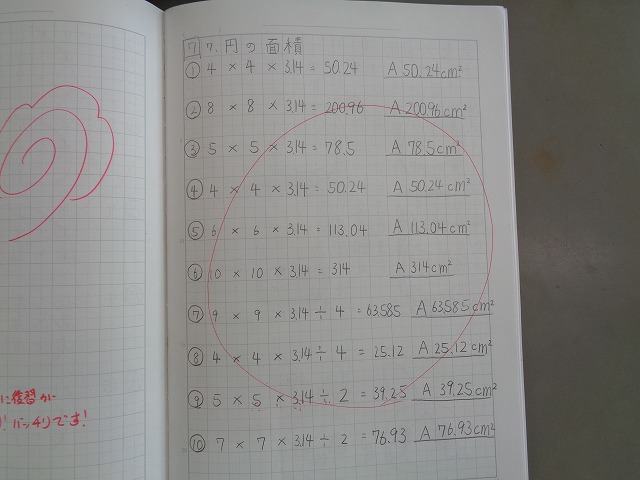 7 7. 円の面積
① 4 × 4 × 3.14 = 50.24 A 50.24cm²
② 8 × 8 × 3.14 = 200.96 A 200.96cm²
③ 5 × 5 × 3.14 = 78.5 A 78.5cm²
④ 4 × 4 × 3.14 = 50.24 A 50.24cm²
⑤ 6 × 6 × 3.14 = 113.04 A 113.04cm²
⑥ 10 × 10 × 3.14 = 314 A 314cm²
⑦ 9 × 9 × 3.14 ÷ 4 = 63.585 A 63.585cm²
⑧ 4 × 4 × 3.14 ÷ 4 = 25.12 A 25.12cm²
⑨ 5 × 5 × 3.14 ÷ 2 = 39.25 A 39.25cm²
⑩ 7 × 7 × 3.14 ÷ 2 = 76.93 A 76.93cm²
に復習が
バッチリです!